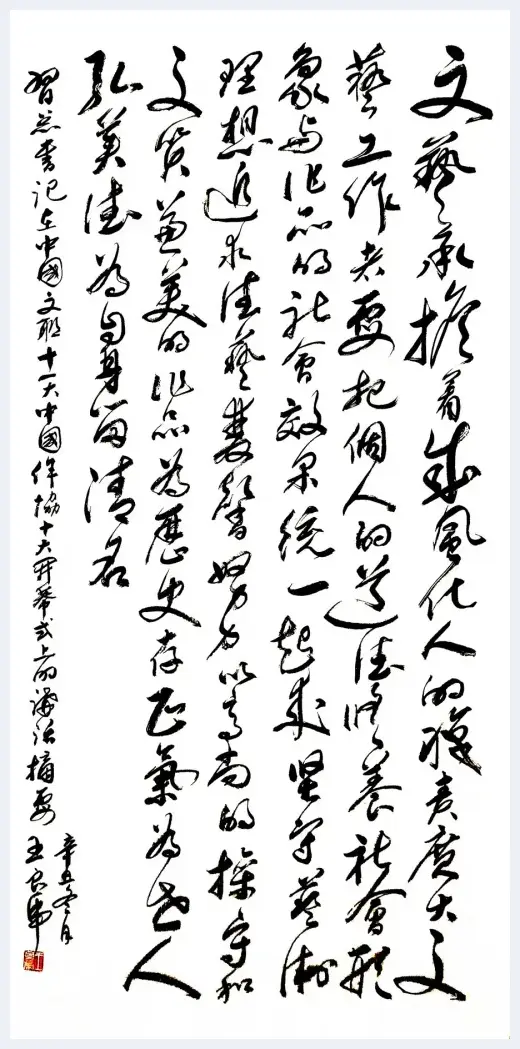 文藝承擔着成風化人的職責廣大文
藝工作者要把個人的道德修養社會形
象与作品的社會效果统一起来坚守藝術
理想追求德藝雙馨努力以高尚的操守和
文质兼美的作品為歷史存正氣為世人
弘美德為自身留清名
習总書记在中國文联十一大中國作協十大開幕式上的講話摘要
辛丑冬月
王